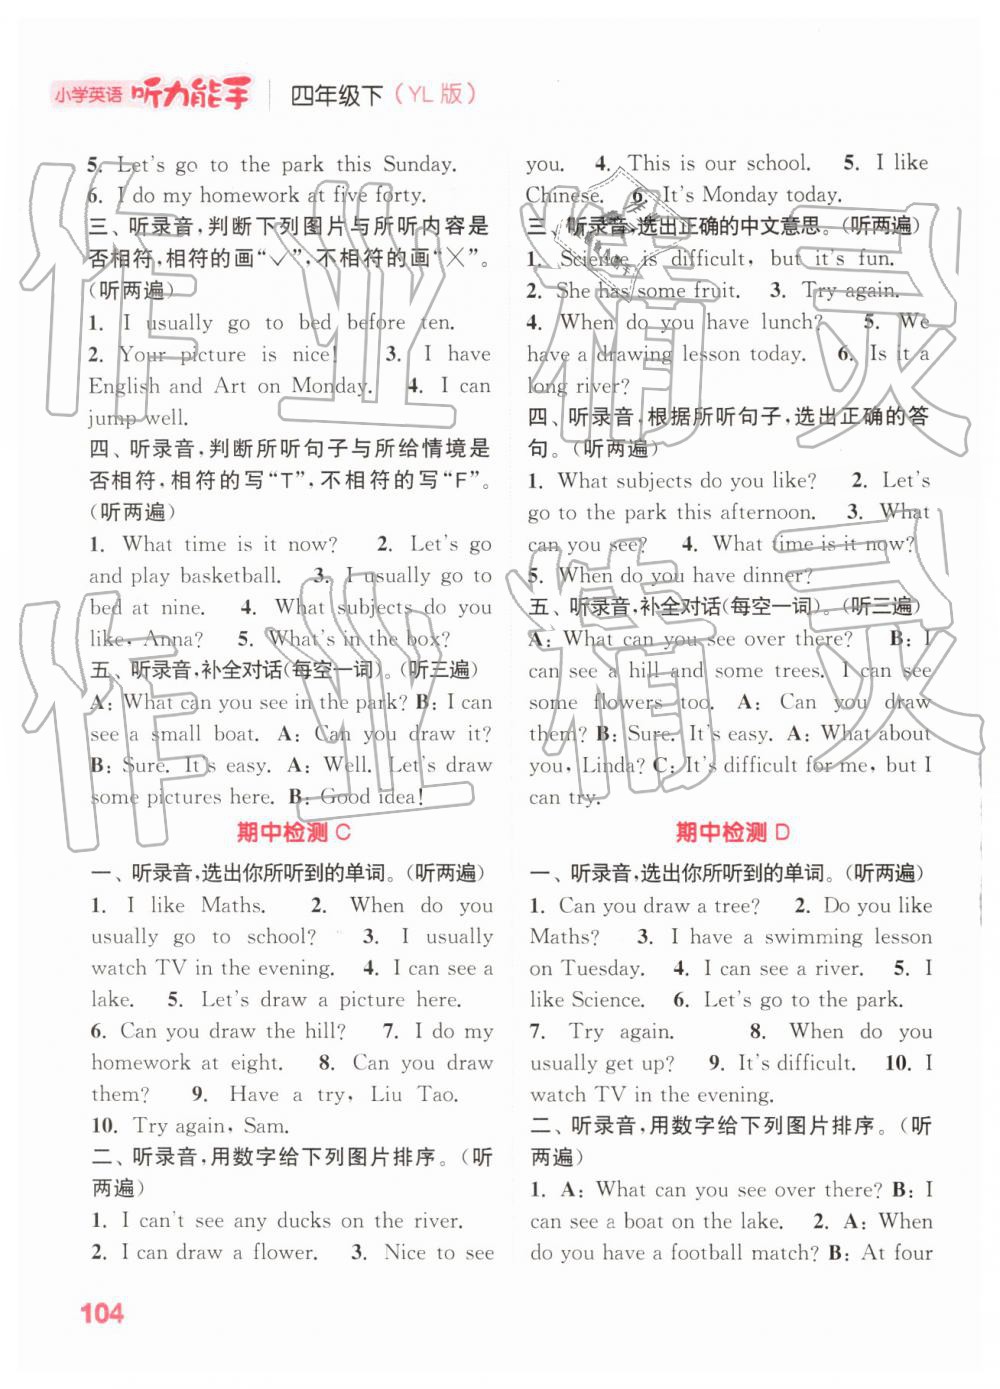 小学英语 听力能手 四年级下（YL版）
5. Let's go to the park this Sunday.
6. I do my homework at five forty.
三、听录音,判断下列图片与所听内容是
否相符,相符的画“√”,不相符的画“×”。
（听两遍）
1. I usually go to bed before ten.
2. Your picture is nice! 3. I have
English and Art on Monday. 4. I can
jump well.
四、听录音,判断所听句子与所给情境是
否相符,相符的写“T”,不相符的写“F”。
（听两遍）
1. What time is it now? 2. Let's go
and play basketball. 3. I usually go to
bed at nine. 4. What subjects do you
like, Anna? 5. What's in the box?
五、听录音,补全对话(每空一词)。（听三遍）
A: What can you see in the park? B: I can
see a small boat. A: Can you draw it?
B: Sure. It's easy. A: Well. Let's draw
some pictures here. B: Good idea!
期中检测 C
一、听录音,选出你所听到的单词。（听两遍）
1. I like Maths. 2. When do you
usually go to school? 3. I usually
watch TV in the evening. 4. I can see a
lake. 5. Let's draw a picture here.
6. Can you draw the hill? 7. I do my
homework at eight. 8. Can you draw
them? 9. Have a try, Liu Tao.
10. Try again, Sam.
二、听录音,用数字给下列图片排序。（听
两遍）
1. I can't see any ducks on the river.
2. I can draw a flower. 3. Nice to see
you. 4. This is our school. 5. I like
Chinese. 6. It's Monday today.
三、听录音,选出正确的中文意思。（听两遍）
1. Science is difficult, but it's fun.
2. She has some fruit. 3. Try again.
4. When do you have lunch? 5. We
have a drawing lesson today. 6. Is it a
long river?
四、听录音,根据所听句子,选出正确的答
句。（听两遍）
1. What subjects do you like? 2. Let's
go to the park this afternoon. 3. What
can you see? 4. What time is it now?
5. When do you have dinner?
五、听录音,补全对话(每空一词)。（听三遍）
A: What can you see over there? B: I
can see a hill and some trees. I can see
some flowers too. A: Can you draw
them? B: Sure. It's easy. A: What about
you, Linda? C: It's difficult for me, but I
can try.
期中检测 D
一、听录音,选出你所听到的单词。（听两遍）
1. Can you draw a tree? 2. Do you like
Maths? 3. I have a swimming lesson
on Tuesday. 4. I can see a river. 5. I
like Science. 6. Let's go to the park.
7. Try again. 8. When do you
usually get up? 9. It's difficult. 10. I
watch TV in the evening.
二、听录音,用数字给下列图片排序。（听
两遍）
1. A: What can you see over there? B: I
can see a boat on the lake. 2. A: When
do you have a football match? B: At four
104
作业精灵
作业精灵